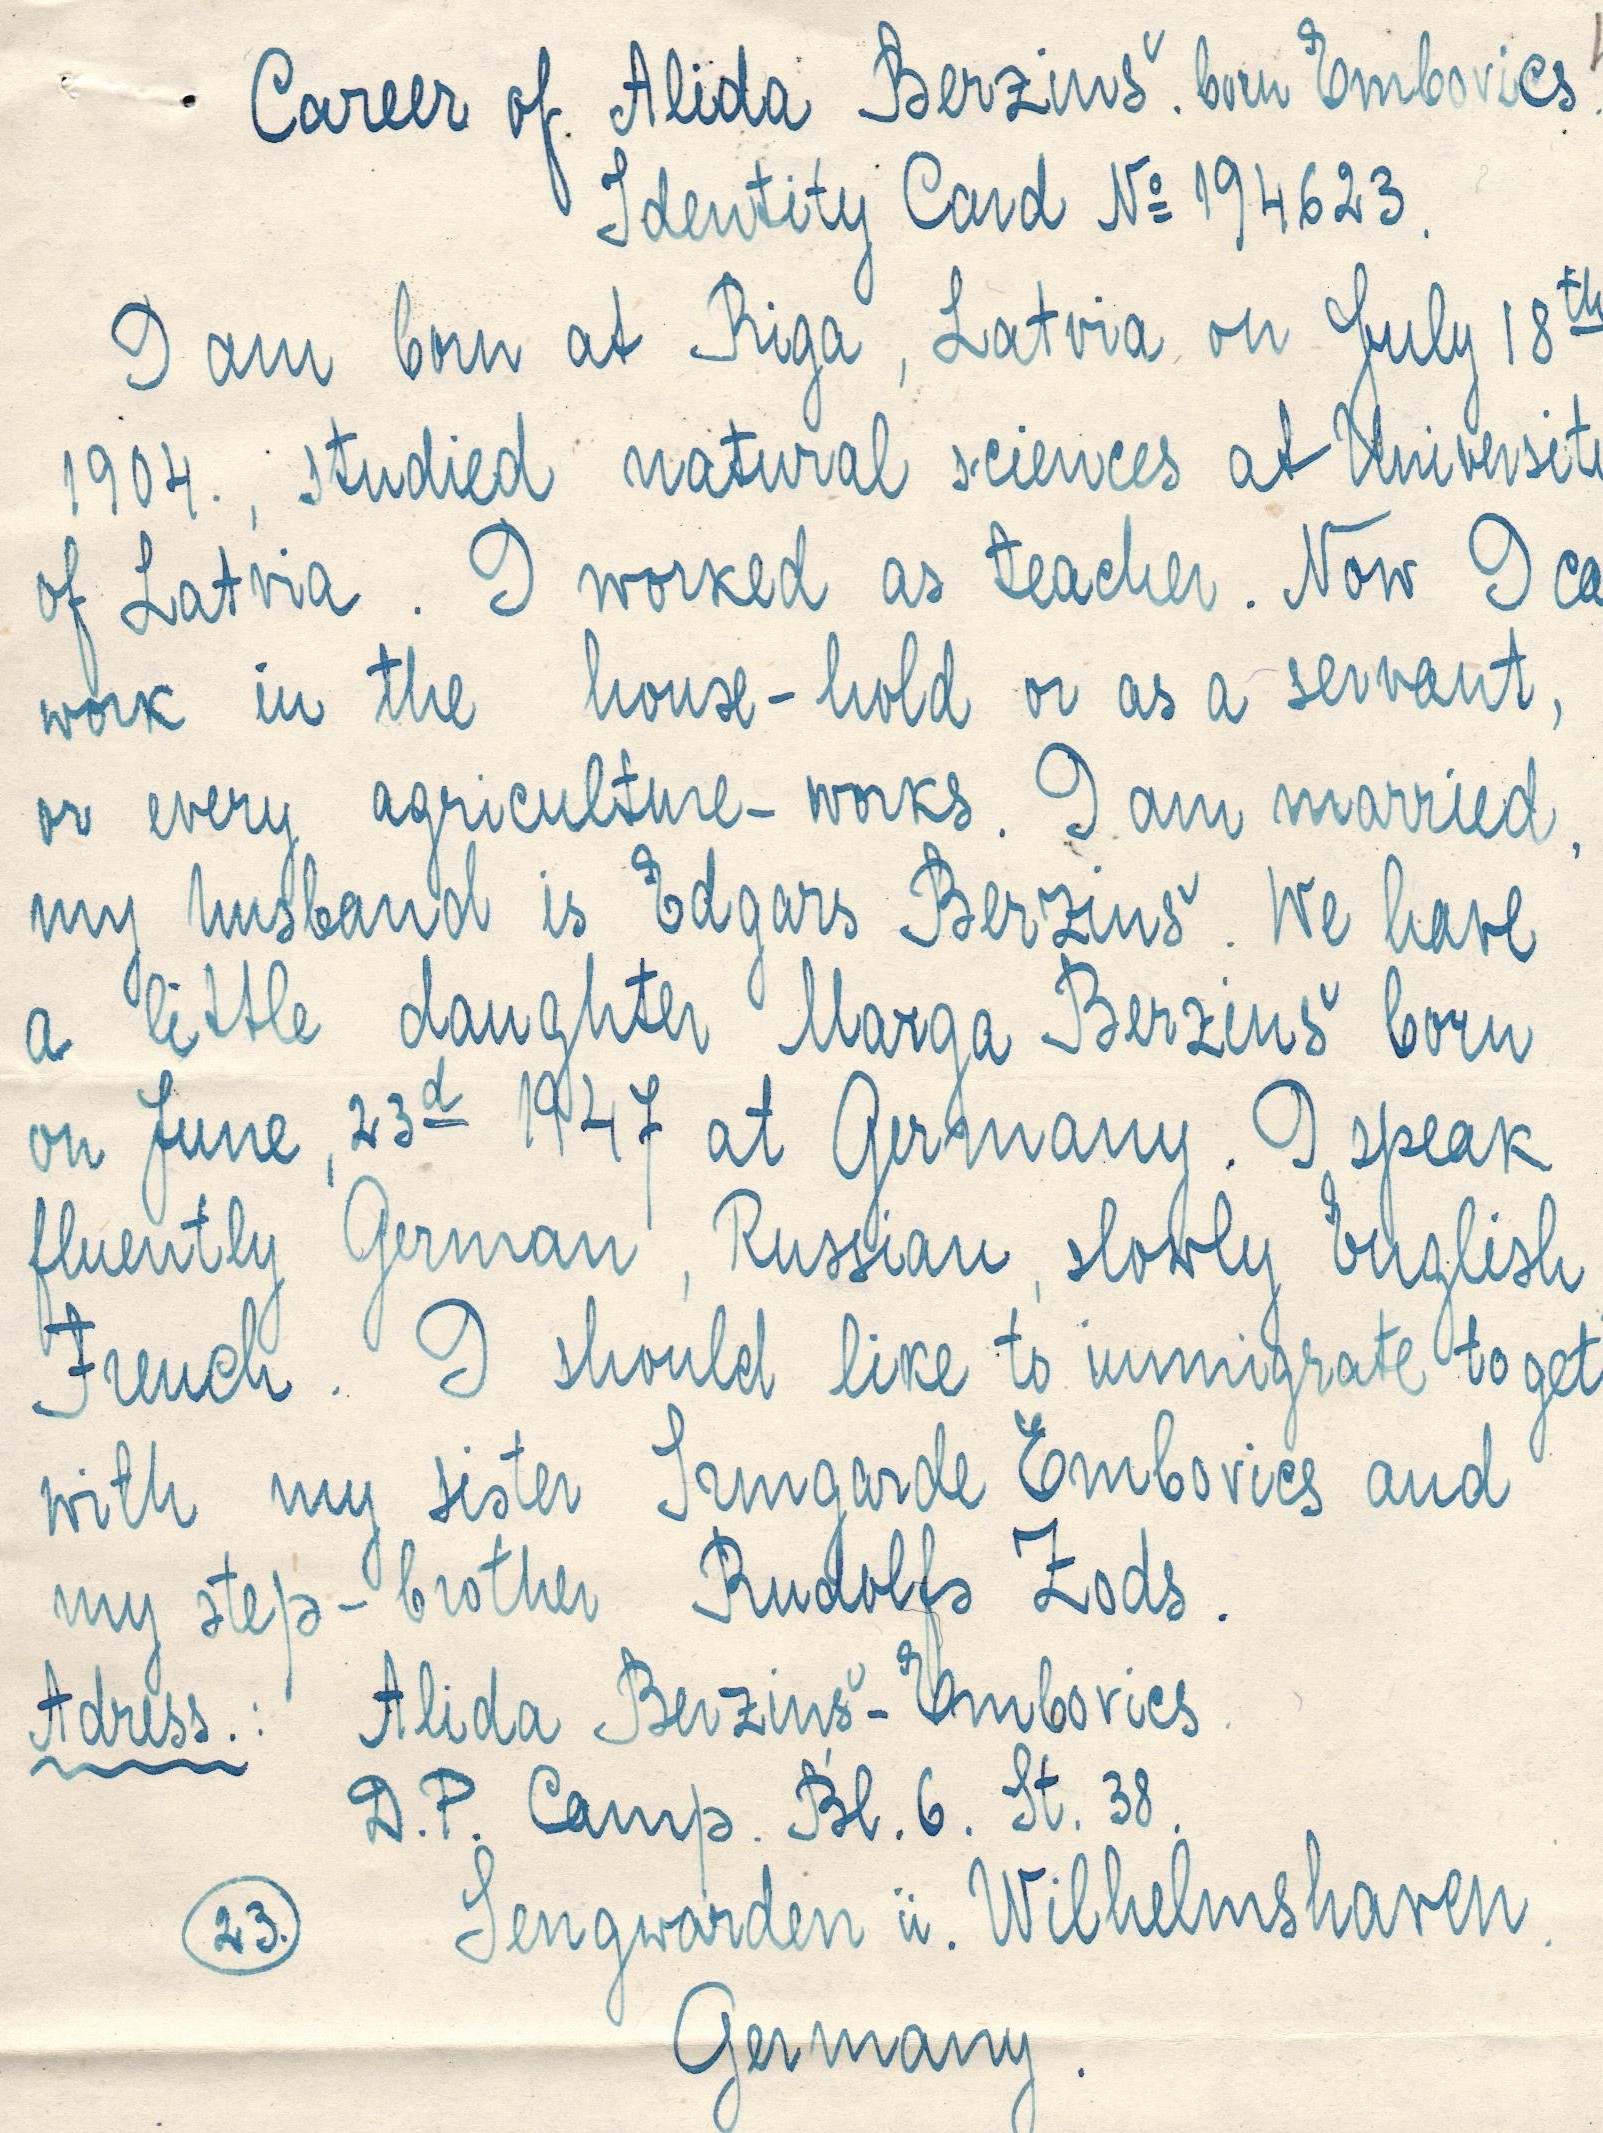 Career of Alida Berzinš. born Embovics.
Identity Card № 194623.
I am born at Riga, Latvia on July 18th
1904., studied natural sciences at Universit
of Latvia. I worked as teacher. Now I ca
work in the house-hold or as a servant,
or every agriculture-works. I am married,
my husband is Edgars Berzinš. We have
a little daughter Marga Berzinš born
on June, 23d 1947 at Germany. I speak
fluently German, Russian, slowly English
French. I should like to immigrate toget
with my sister Irmgarde Embovics and
my step-brother Rudolfs Zods.
Adress.: Alida Berzinš-Embovics.
D.P. Camp. Bl. 6. St. 38.
23. Sengwarden ü. Wilhelmshaven.
Germany.